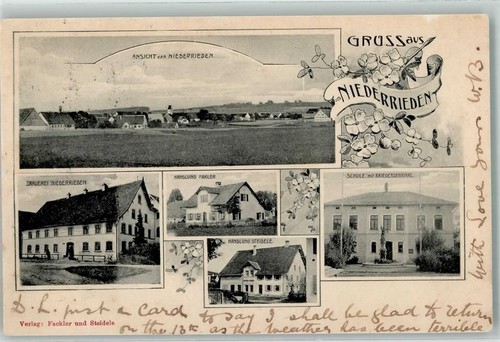 GRUSS aus
NIEDERRIEDEN
ANSICHT von NIEDERRIEDEN.
BRAUEREI NIEDERRIEDEN.
HANDLUNG FAKLER.
HANDLUNG STEIDELE.
SCHULE mit KRIEGERDENKMAL.
With Love Yours W.B.
D. L. just a card to say I shall be glad to return
on the 13th as the weather has been terrible
Verlag: Fackler und Steidele